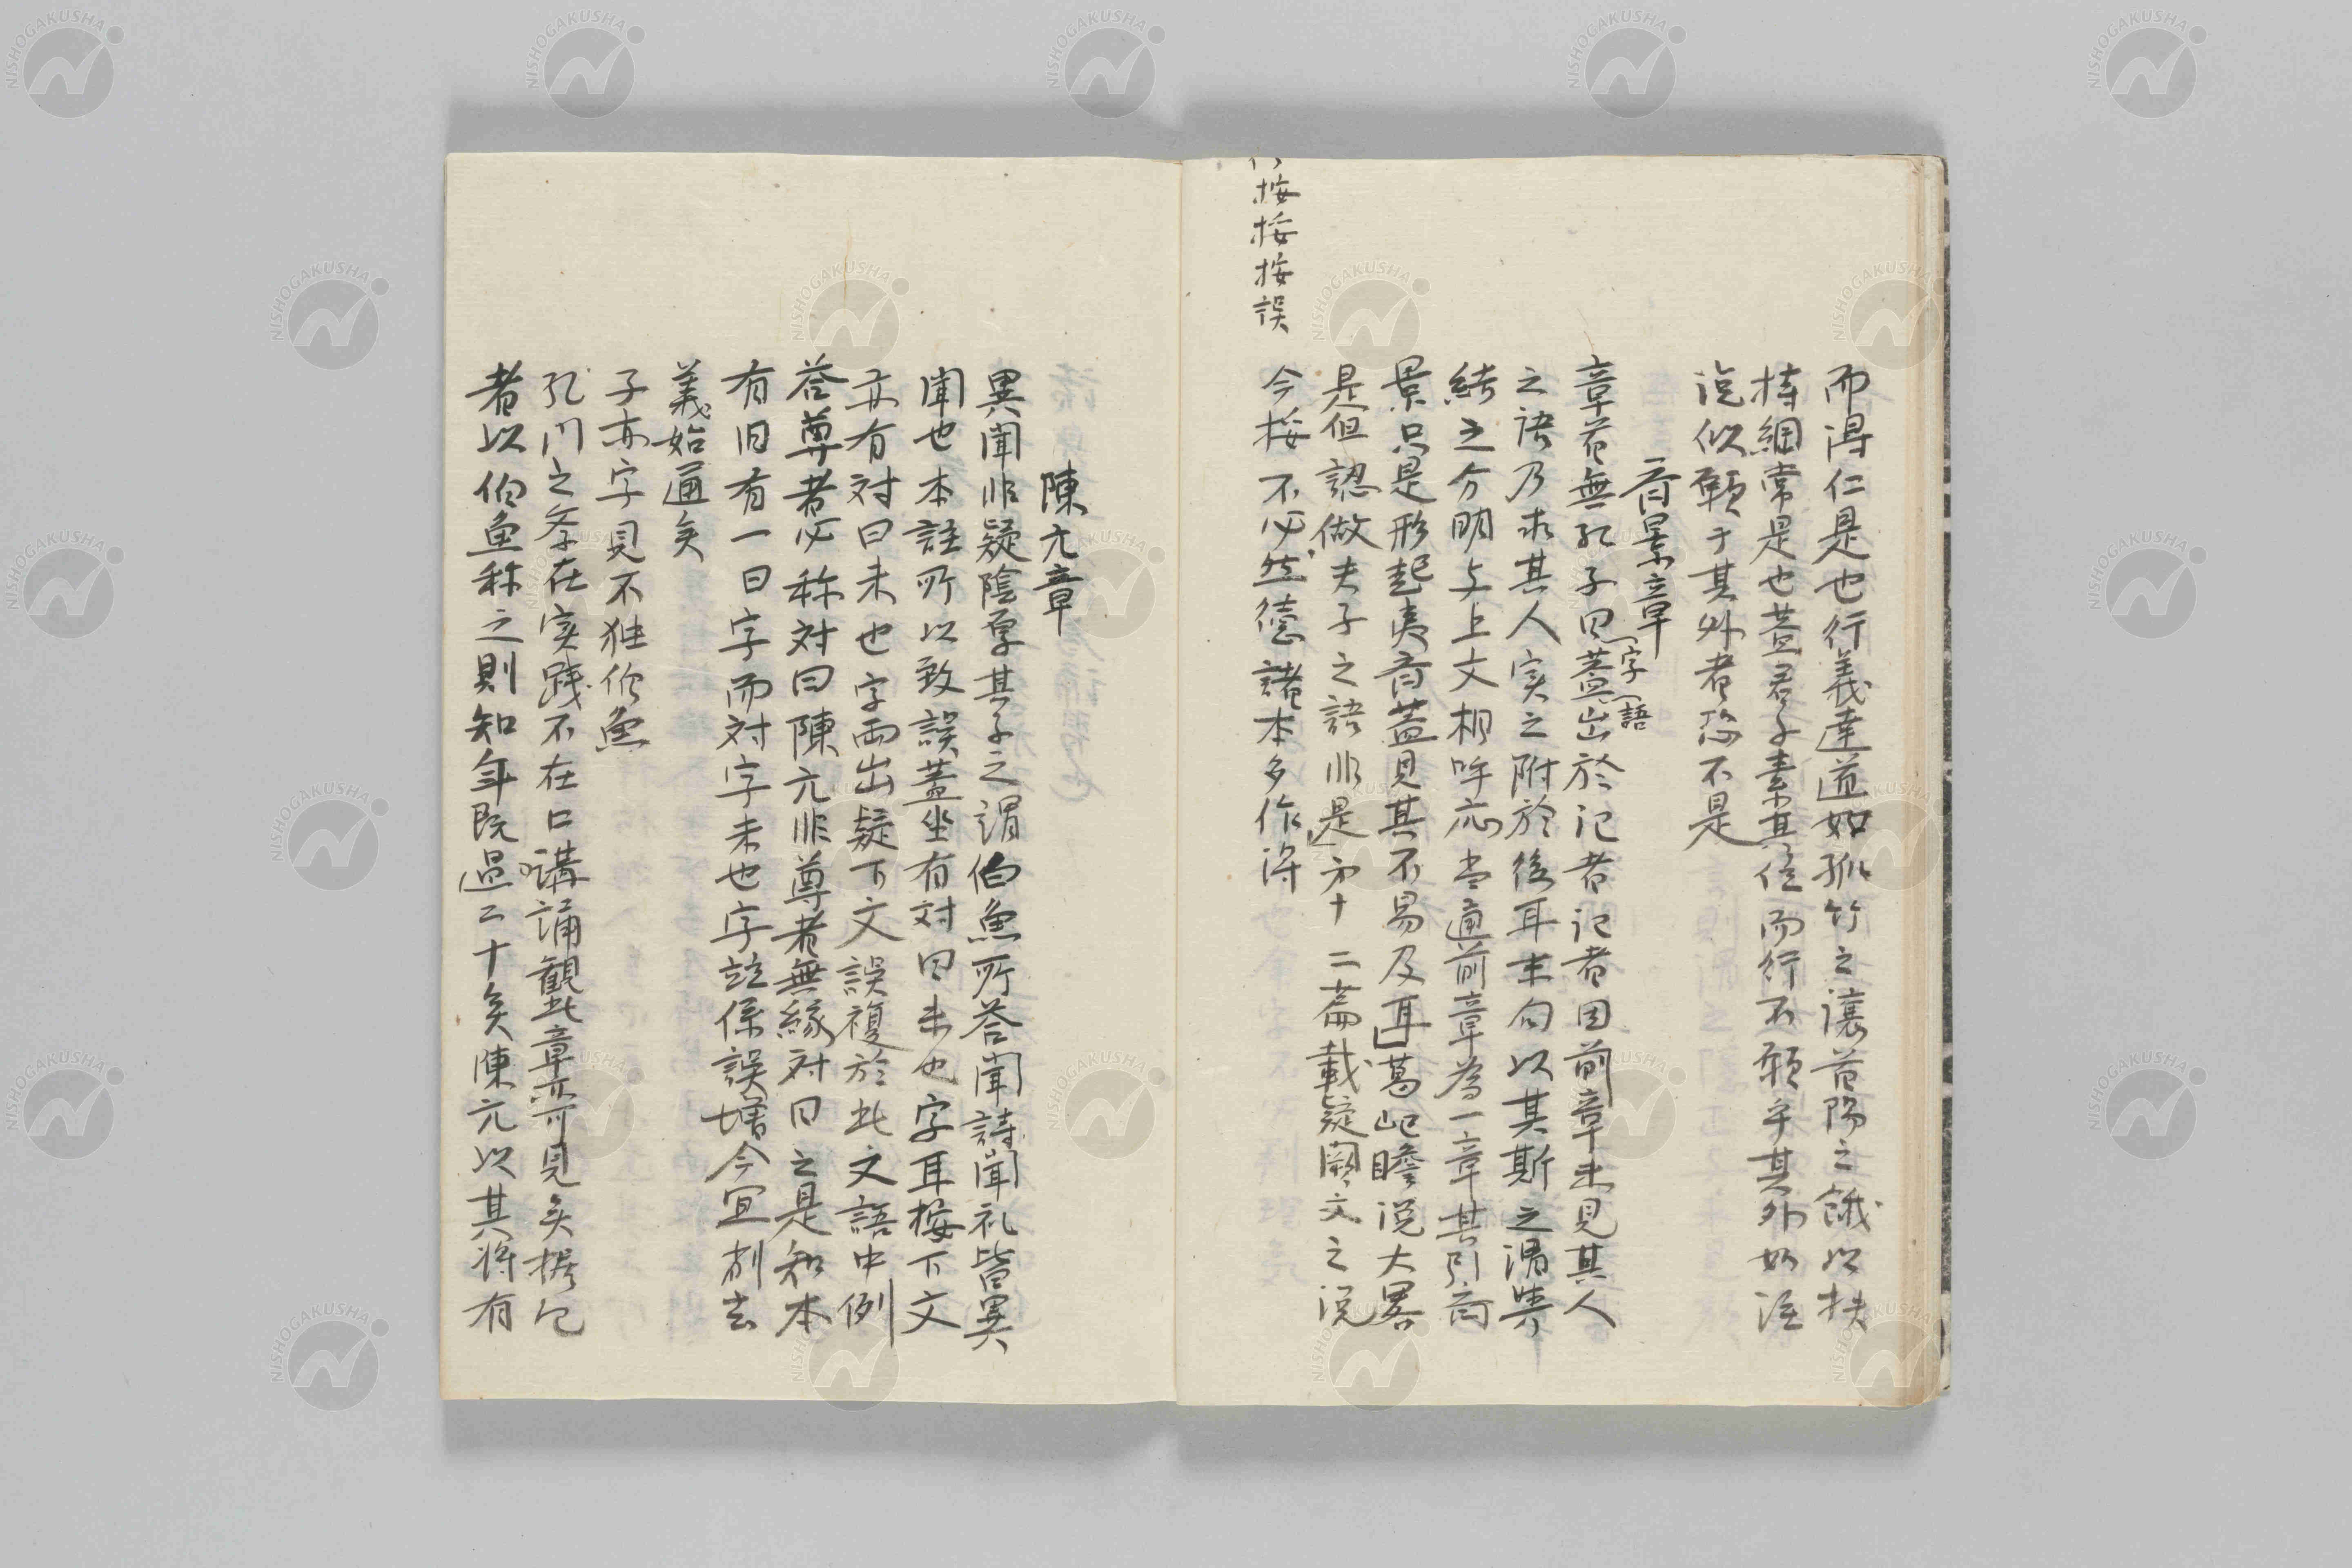 而得仁是也行義達道如孤竹之讓首陽之餓以扶
持綱常是也蓋君子素其位而行不願乎其外如注
說似願于其外者恐不是
斉景章
章首無孔子曰字蓋出於記者語記者因前章未見其人
之語乃求其人実之附於後耳末句以其斯之謂与
結之分明与上文相呼応当通前章為一章其引斉
景只是形起夷斉蓋見其不易及耳」葛屺瞻說大畧
是但認做夫子之語非是」第十二篇載疑闕文之說
今桉不必然徳諸本多作得
按桉按誤
陳亢章
異聞非疑陰厚其子之謂伯魚所答聞詩聞礼皆異
聞也本註所以致誤蓋坐有対曰未也字耳桉下文
亦有対曰未也字両出疑下文誤複於此文語中例
答尊者必称対曰陳亢非尊者無縁対曰之是知本
有旧有一曰字而対字未也字竝係誤増今宜削去
義始通矣
子亦字見不独伯魚
孔门之学在実践不在口講誦観此章亦可見矣据凡
者以伯魚称之則知年既過二十矣陳亢以其将有
NISHOGAKUSHA